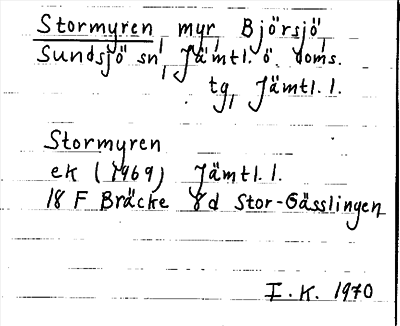 Stormyren, myr, Björsjö,
Sundsjö sn, Jämtl. ö. doms.
tg, Jämtl. l.
Stormyren
ek (1969) Jämtl. l.
18 F Bräcke 8d Stor-Gässlingen
I. K. 1970